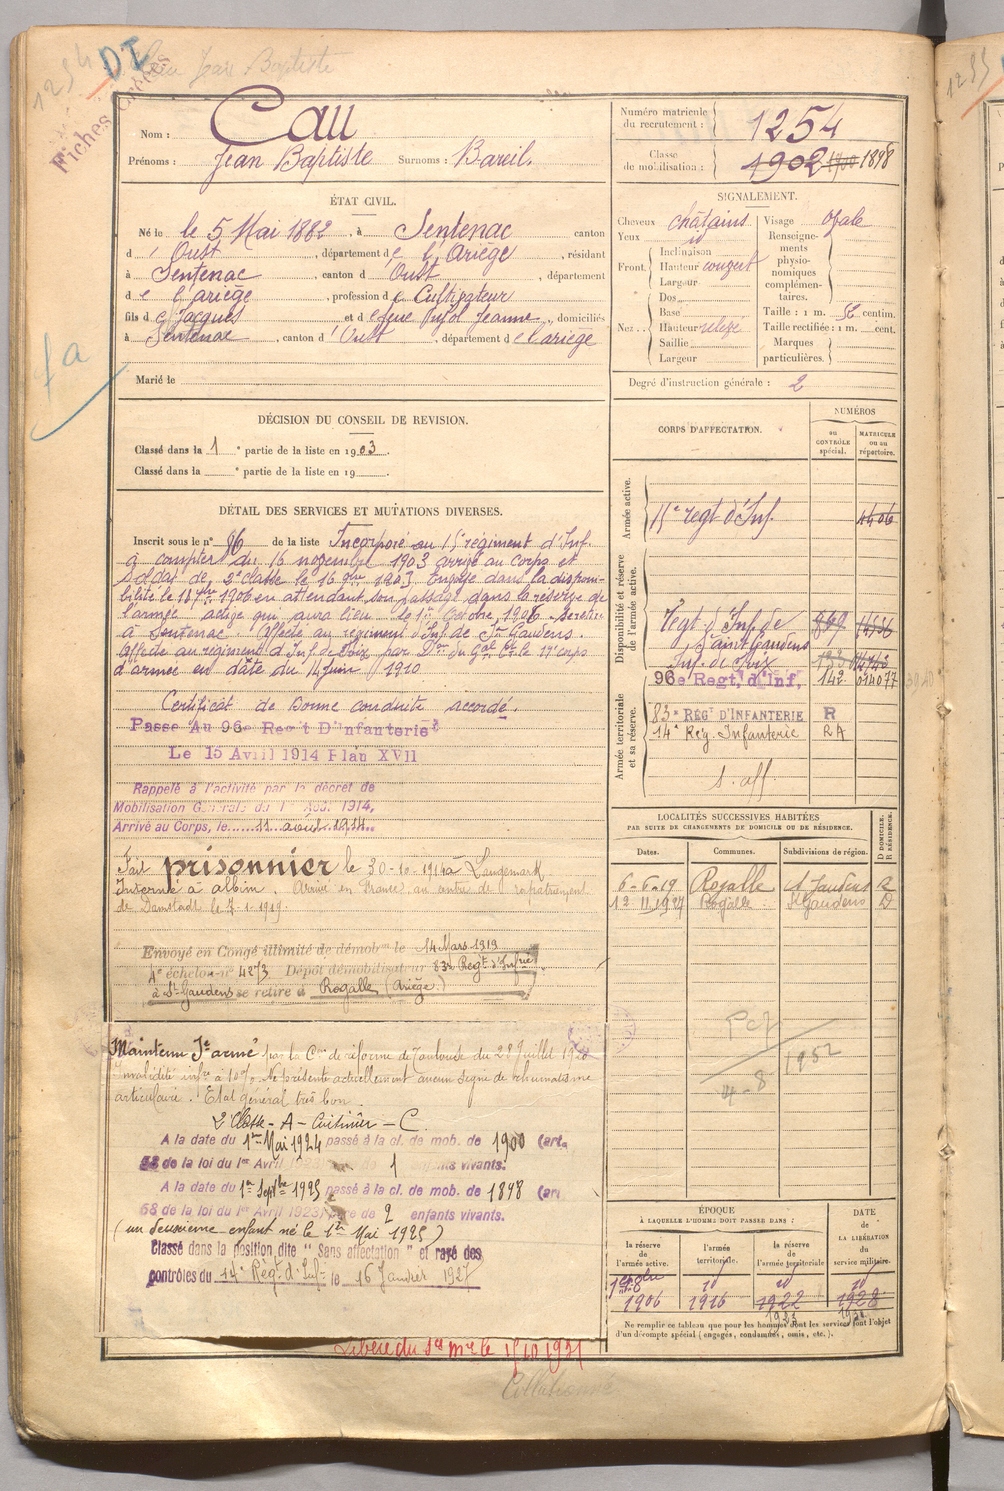 1254
DI
Cau Jean Baptiste
Fiches
fa
Nom : Cau
Prénoms : Jean Baptiste Surnoms : Bareil.
Numéro matricule du recrutement : 1254
Classe de mobilisation : 1902 1900 1898
ÉTAT CIVIL.
Né le le 5 Mai 1882, à Sentenac canton
d' Oust, département de l'Ariège, résidant
à Sentenac, canton d'Oust, département
de l'ariège, profession de Cultivateur
fils de Jacques et de feue Pujol Jeanne, domiciliés
à Sentenac, canton d'Oust, département de l'ariège
Marié le
SIGNALEMENT.
Cheveux châtains
Yeux id
Front. Inclinaison
Hauteur couvert
Largeur
Nez. Dos
Base
Hauteur relevé
Saillie
Largeur
Visage ovale
Renseignements physionomiques complémentaires.
Taille : 1 m. 52 centim.
Taille rectifiée : 1 m. cent.
Marques particulières.
Degré d'instruction générale : 2
DÉCISION DU CONSEIL DE REVISION.
Classé dans la 1e partie de la liste en 1903.
Classé dans la e partie de la liste en 19
DÉTAIL DES SERVICES ET MUTATIONS DIVERSES.
Inscrit sous le n° 86 de la liste Incorporé au 15e régiment d'Inf.
à compter du 16 novembre 1903 arrivé au corps et
soldat de 2e classe le 16 9bre 1903 Envoyé dans la disponi-
bilité le 18 7bre 1906 en attendant son passage dans la réserve de
l'armée active qui aura lieu le 1er Octobre 1906 se retire
à Sentenac. Affecté au régiment d'Inf. de St Gaudens.
Affecté au régiment d'Inf. de Foix par Don du Gal Ct le 17e corps
d'armée en date du 14 juin 1910
Certificat de Bonne conduite accordé.
Passé Au 96e Regt D'infanterie
Le 15 Avril 1914 Plan XVII
Rappelé à l'activité par le décret de
Mobilisation Générale du 1 Août 1914,
Arrivé au Corps, le 11 août 1914
Fait prisonnier le 30-10-1914 à Langemark
Interné à albin. Arrivé en France au centre de rapatriement
de Damstadt le 7-1-1919.
Envoyé en Congé illimité de démobon le 14 Mars 1919
4e échelon n° 4273 Dépôt démobilisateur 83e Regt d'Infrie
à St Gaudens se retire à Rogalle (Ariège)
Maintenu Se armé par la Con de réforme de Toulouse du 28 Juillet 19
Invalidité infre à 10% Ne présente actuellement aucun signe de rhumatisme
articulaire. Etat général très bon.
2e Classe - A - - C.
A la date du 1er Mai 1924 passé à la cl. de mob. de 1900 (art.
58 de la loi du 1er Avril 1923 de 1 enfants vivants.
A la date du 1er Septbre 1925 passé à la cl. de mob. de 1898 (art
58 de la loi du 1er Avril 1923 Père de 2 enfants vivants.
(un deuxième enfant né le 1er Mai 1925)
Classé dans la position dite " Sans affectation " et rayé des
contrôles du 14e Regt d'Infie le 16 Janvier 1927
Libéré du Sce mre le 15/10 1931
Collationné
CORPS D'AFFECTATION.
NUMÉROS
au CONTRÔLE spécial.
MATRICULE ou au répertoire.
Armée active.
15e regt d'Inf. 4406
Disponibilité et réserve de l'armée active.
Regt d'Inf. de Saint Gaudens 869
Inf. de Foix
96e Regt, d'Inf, 142 014077
Armée territoriale et sa réserve.
83e REGt D'INFANTERIE R
14e Rég. Infanterie RA
s. aff
LOCALITÉS SUCCESSIVES HABITÉES
PAR SUITE DE CHANGEMENTS DE DOMICILE OU DE RÉSIDENCE.
Dates. Communes. Subdivisions de région. D DOMICILE. R RÉSIDENCE.
6-6-19 Rogalle St Gaudens R
12.11.1927 Rogalle St Gaudens D
4-8 1952
ÉPOQUE
À LAQUELLE L'HOMME DOIT PASSER DANS :
la réserve de l'armée active.
l'armée territoriale.
la réserve de l'armée territoriale
DATE DE LA LIBÉRATION du service militaire.
1er 8bre 1906
id 1916
id 1922
id 1928
Ne remplir ce tableau que pour les hommes dont les services font l'objet
d'un décompte spécial (engagés, condamnés, omis, etc.).